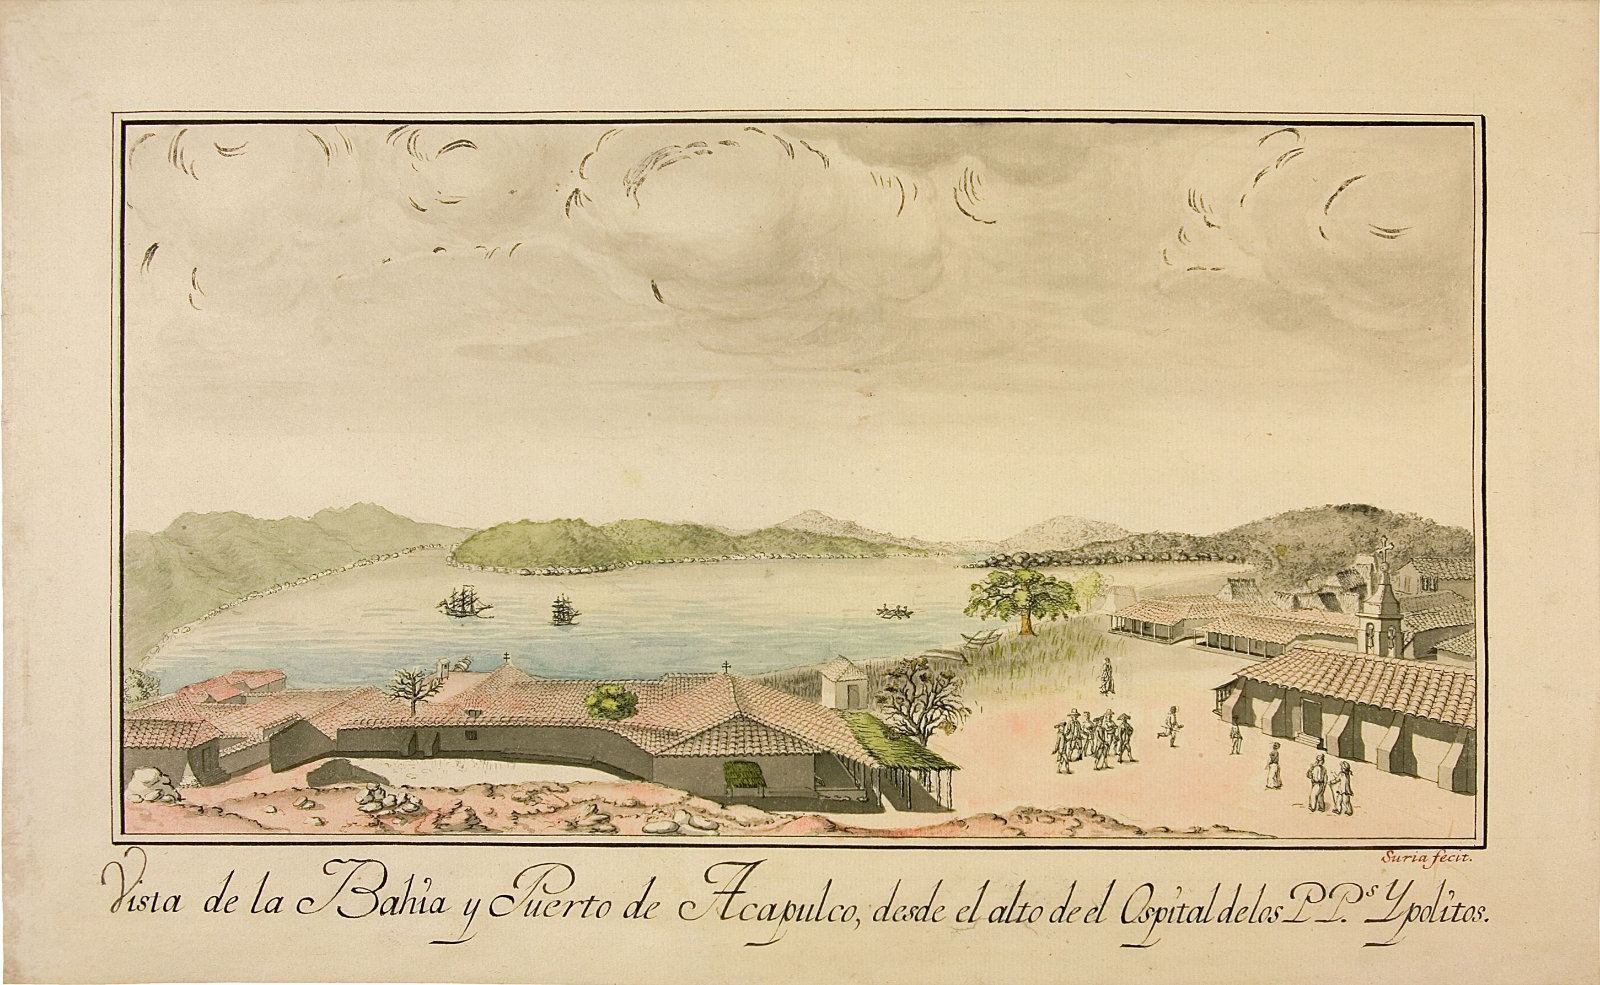 Suria fecit.
Vista de la Bahìa y Puerto de Acapulco, desde el alto de el Ospital de los P P.ˢ Ypolìtos.